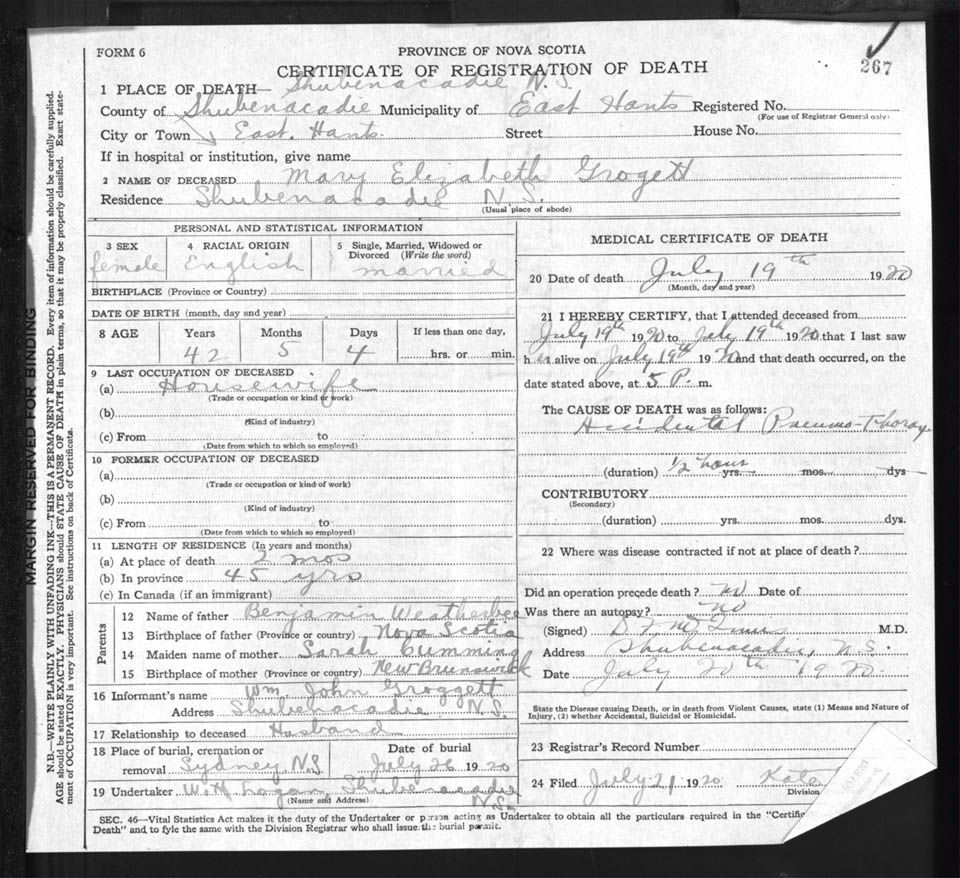 FORM 6
PROVINCE OF NOVA SCOTIA
267
CERTIFICATE OF REGISTRATION OF DEATH
1 PLACE OF DEATH— Shubenacadie N.S.
County of Shubenacadie Municipality of East Hants Registered No.
(For use of Registrar General only)
City or Town East Hants Street House No.
If in hospital or institution, give name
2 NAME OF DECEASED Mary Elizabeth Grogett
Residence Shubenacadie N.S.
(Usual place of abode)
PERSONAL AND STATISTICAL INFORMATION
3 SEX 4 RACIAL ORIGIN 5 Single, Married, Widowed or Divorced (Write the word)
female English married
BIRTHPLACE (Province or Country)
DATE OF BIRTH (month, day and year)
8 AGE Years Months Days If less than one day,
42 5 4 hrs. or min.
9 LAST OCCUPATION OF DECEASED
(a) Housewife
(Trade or occupation or kind of work)
(b)
(Kind of industry)
(c) From to
(Date from which to which so employed)
10 FORMER OCCUPATION OF DECEASED
(a)
(Trade or occupation or kind of work)
(b)
(Kind of industry)
(c) From to
(Date from which to which so employed)
11 LENGTH OF RESIDENCE (In years and months)
(a) At place of death 2 mos
(b) In province 45 yrs
(c) In Canada (if an immigrant)
Parents
12 Name of father Benjamin Weatherbee
13 Birthplace of father (Province or country) Nova Scotia
14 Maiden name of mother Sarah Cumming
15 Birthplace of mother (Province or country) New Brunswick
16 Informant's name Wm. John Groggett
Address Shubenacadie N.S.
17 Relationship to deceased Husband
18 Place of burial, cremation or removal Sydney, N.S. Date of burial July 26 1920
19 Undertaker W.H. Logan, Shubenacadie N.S.
(Name and Address)
MEDICAL CERTIFICATE OF DEATH
20 Date of death July 19th 1920
(Month, day and year)
21 I HEREBY CERTIFY, that I attended deceased from
July 19th 1920 to July 19th 1920 that I last saw
her alive on July 19th 1920 and that death occurred, on the
date stated above, at 5 P. m.
The CAUSE OF DEATH was as follows:
Accidental Pneumo-Thorax
(duration) 1/2 hour yrs. mos. dys
CONTRIBUTORY
(Secondary)
(duration) yrs. mos. dys.
22 Where was disease contracted if not at place of death?
Did an operation precede death? no Date of
Was there an autopsy? no
(Signed) M.D.
Address Shubenacadie, N.S.
Date July 20th 1920
State the Disease causing Death, or in death from Violent Causes, state (1) Means and Nature of
Injury, (2) whether Accidental, Suicidal or Homicidal.
23 Registrar's Record Number
24 Filed July 21 1920 Kate
Division
SEC. 46—Vital Statistics Act makes it the duty of the Undertaker or person acting as Undertaker to obtain all the particulars required in the "Certific
Death" and to fyle the same with the Division Registrar who shall issue the burial permit.
MARGIN RESERVED FOR BINDING
N.B.—WRITE PLAINLY WITH UNFADING INK—THIS IS A PERMANENT RECORD. Every item of information should be carefully supplied.
AGE should be stated EXACTLY. PHYSICIANS should STATE CAUSE OF DEATH in plain terms, so that it may be properly classified. Exact state-
ment of OCCUPATION is very important. See instructions on back of Certificate.